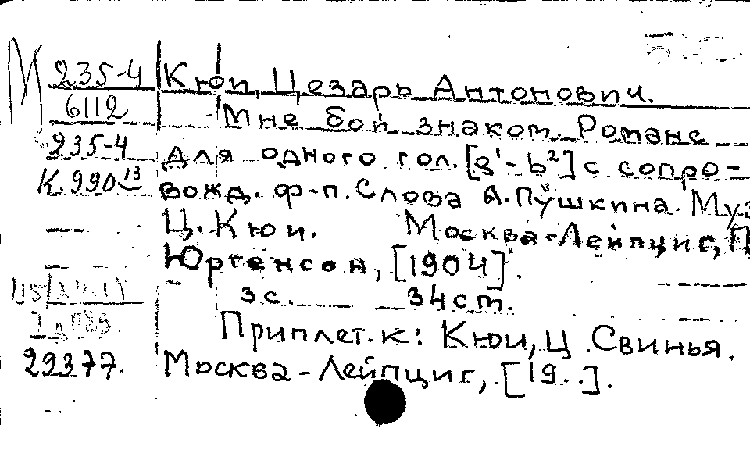 М 235-4 Кюи, Цезарь Антонович.
6112 Мне бой знаком. Романс
235-4 для одного гол. [e¹-b²] с сопро-
К 990 13 вожд. ф-п. Слова А. Пушкина. Муз
Ц. Кюи. Москва-Лейпциг, П
Юргенсон, [1904].
3 с. 34 см.
Приплет. к: Кюи, Ц. Свинья.
29377. Москва-Лейпциг, [19..].